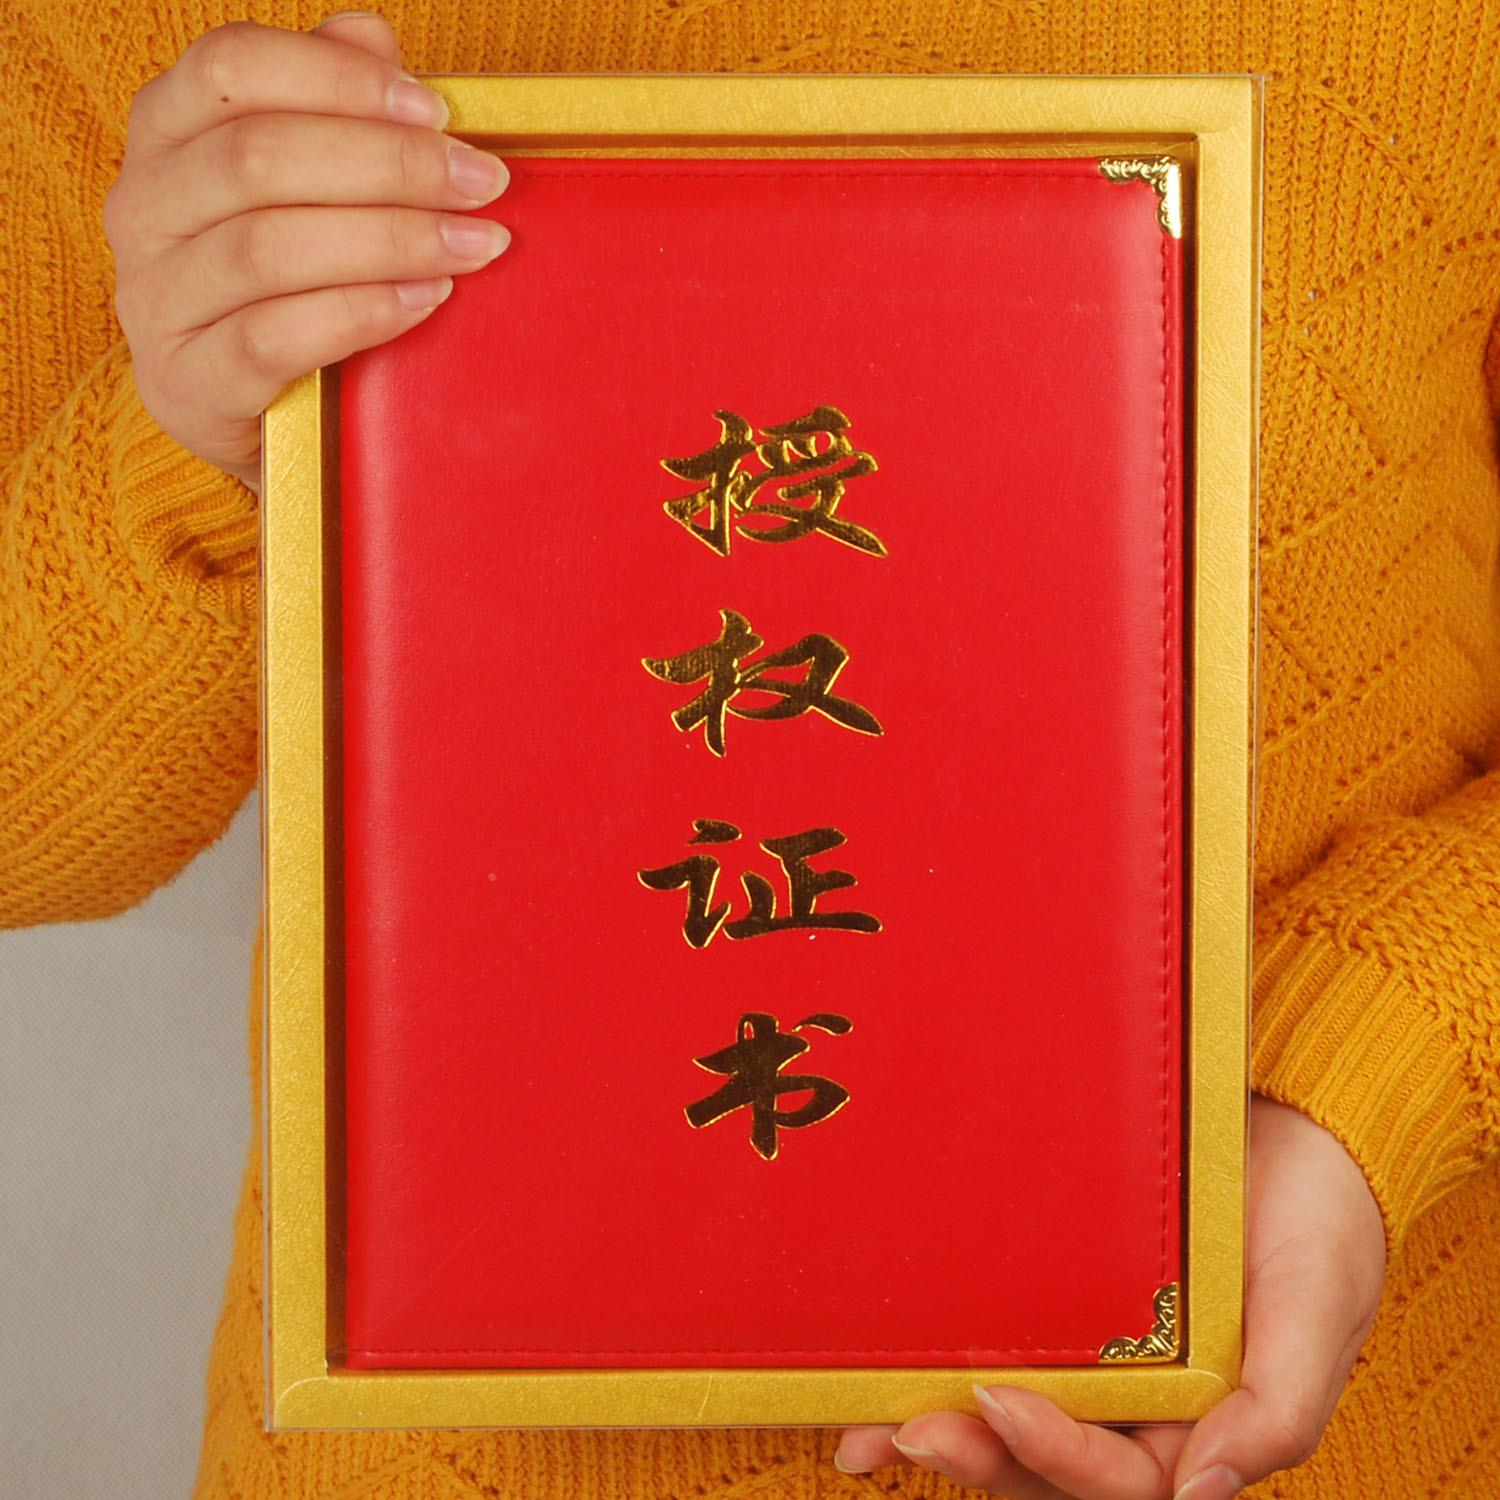 授权证书